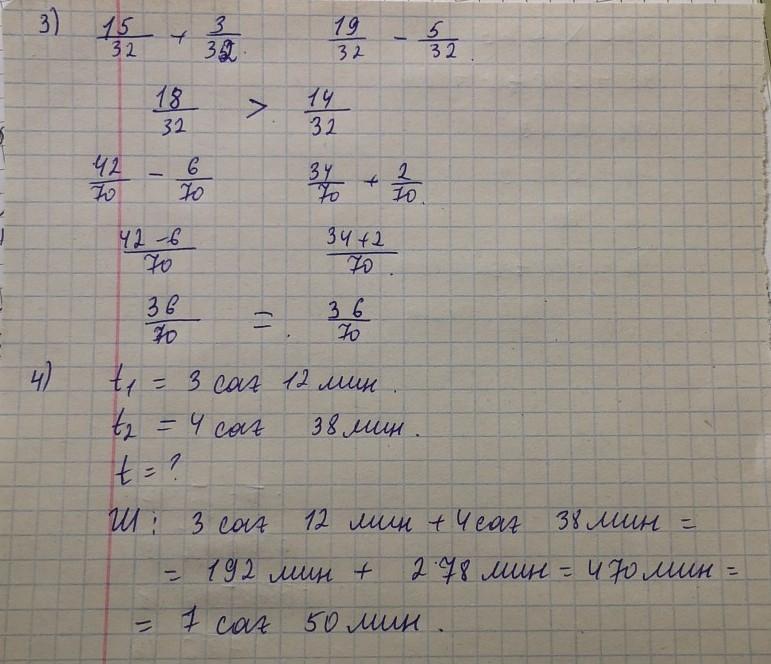 3) 15/32 + 3/32. 19/32 - 5/32.
18/32 > 14/32
42/70 - 6/70 34/70 + 2/70.
42-6/70 34+2/70.
36/70 = 36/70
4) t1 = 3 сағ 12 мин.
t2 = 4 сағ 38 мин.
t = ?
Ш: 3 сағ 12 мин + 4 сағ 38 мин =
= 192 мин + 278 мин = 470 мин =
= 7 сағ 50 мин.